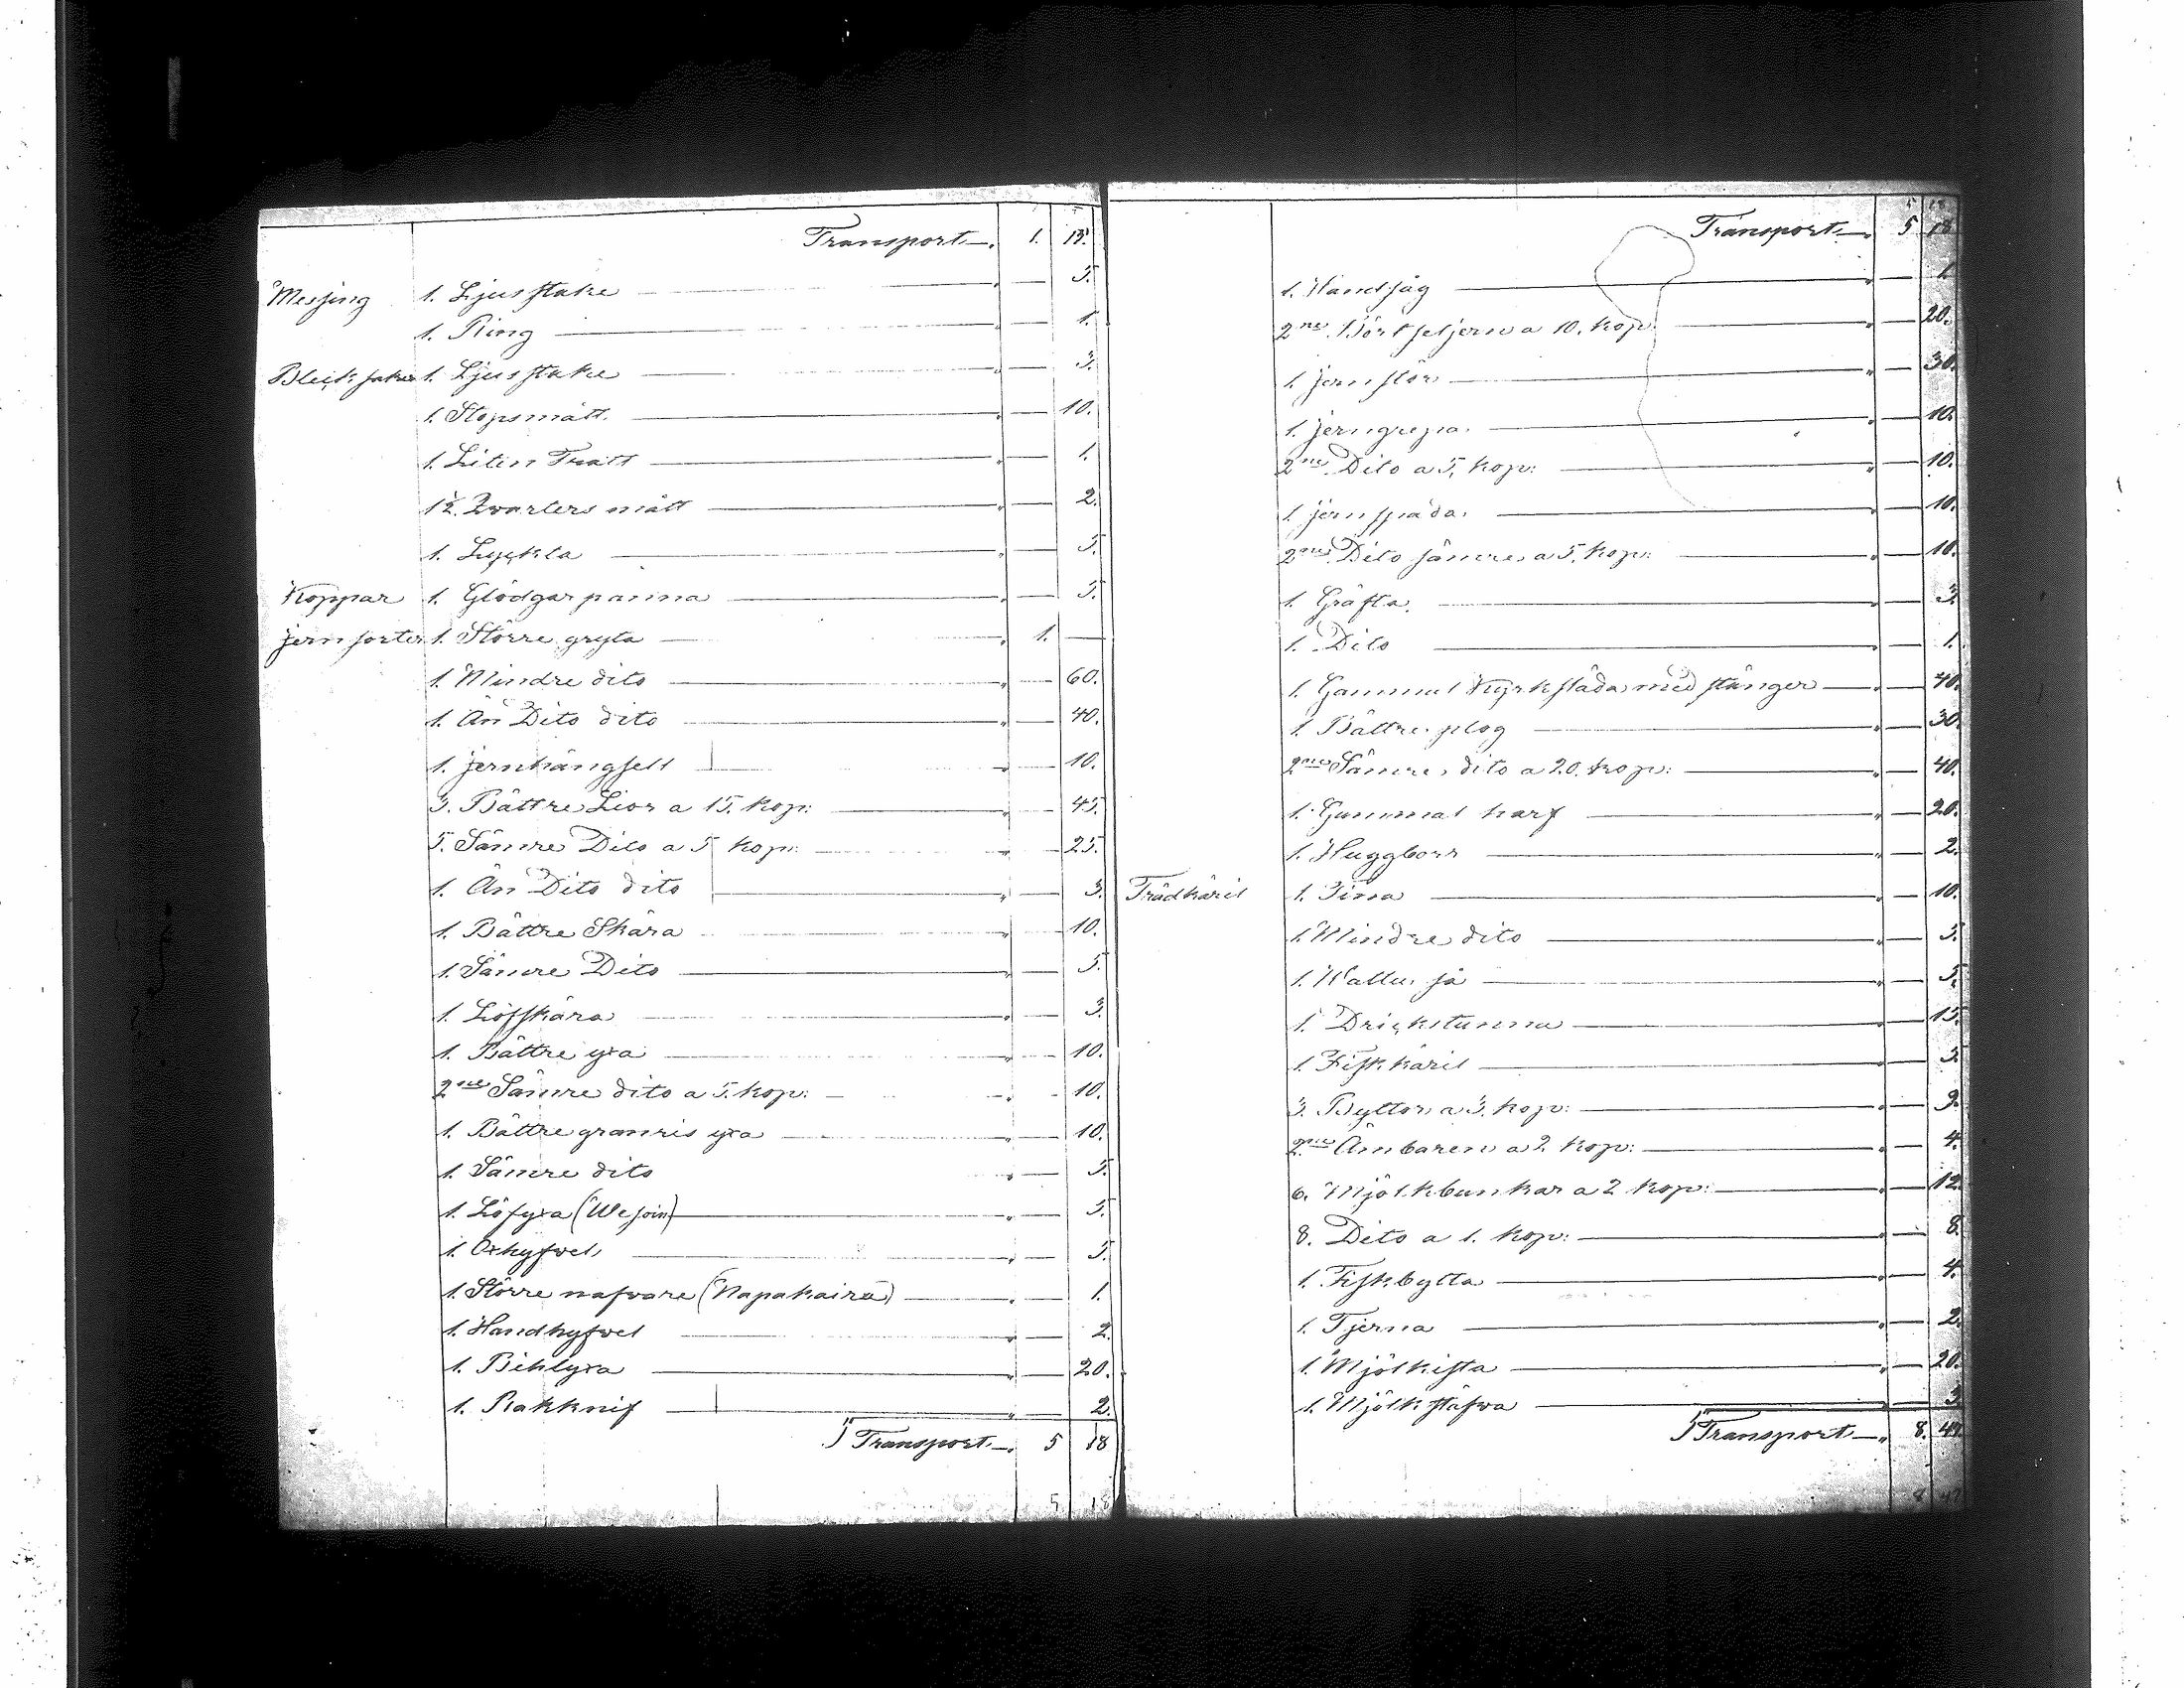 Transport 1. 15.
Messing 1. Ljusstake 5.
1. Ring 1.
Bleck saker 1. Ljusstake 3.
1. Stopsmått 10.
1. Liten Tratt 1.
1/2 Qvarters mått 2.
1. Lyckta 5.
Koppar 1. Glödgar panna 5.
jern sorter 1. Större gryta 1. —
1. Mindre dito 60.
1. Än Dito dito 40.
1. jernhängsell 10.
3. Bättre Lior a 15. kop: 45.
5. Sämre Dito a 5 kop: 25.
1. Än Dito dito 3.
1. Bättre Skära 10.
1. Sämre Dito 5.
1. Löfskära 3.
1. Bättre yxa 10.
2ne Sämre dito a 5. kop: 10.
1. Bättre granris yxa 10.
1. Sämre dito 5.
1. Löfyxa (Wesoin) 5.
1. Oxhyfvel 5.
1. Större nafvare (Napakaira) 1.
1. Handhyfvel 2.
1. Bihlyxa 20.
1. Rakknif 2.
Transport 5 18
5 18
5 18
Transport 5 18
1. Handsåg 1.
2ne a 10. kop: 20.
1. jernstör 30.
1. jerngrepa 10.
2ne Dito a 5. kop: 10.
1. jernspada 10.
2ne Dito sämre a 5. kop: 10.
1. Gräfta 3.
1. Dito 1.
1. Gammal Kyrkslåda med stänger 40.
1. Bättre plog 30.
2ne Sämre dito a 20. kop: 40.
1. Gammal harf 20.
1. Huggborr 2.
Trädkäril 1. Tina 10.
1. Mindre dito 5.
1. Wattu. så 5.
1. Drickstunna 15.
1. Fiskkäril 5.
3. Byttor a 3. kop: 9.
2ne Ämbaren a 2 kop: 4.
6. Mjölkbunkar a 2 kop: 12.
8. Dito a 1. kop: 8.
1. Fiskbytta 4.
1. Tjerna 2.
1. Mjölkista 20.
1. Mjölkstäfva 3.
Transport 8. 47.
8 47